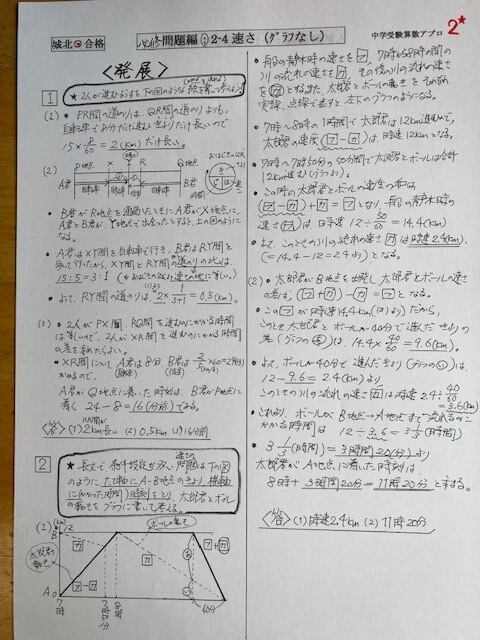 城北 合格
必修問題編:2-4 速さ (グラフなし)
中学受験算数アプロ
2★
<発展>
1
★2人が進むようすを下の図のような
(1) • PR間の道のりは、QR間の道のりよりも、
自転車で8分だけ進む長さだけ長いので
15×8/60=2(km)だけ長い。
(2) P地点 X R Q地点
A君 自転車
B君
• B君がR地点を通過したときにA君がX地点に、
A君とB君が、Y地点で出会ったとすると、上の図のように
なる。
• A君はXY間を自転車で行き、B君はRY間を
歩いて行ったから、XY間とRY間の道のりの比は、
15:5=3:1
• よって、RY間の道のりは、2×1/(3+1)=0.5(km)。
(3) • 2人がPX間、RQ間を進むのにかかる時間
は等しいので、2人がXR間を進むのにかかる時間
の差を求めたらよい。
• XR間について A君は8分、B君は2/5×60=24(分)
かかるので、
A君がQ地点に着いた時刻は、B君がP地点に
着く 24-8=16(分前)である。
<答> (1) 2km長い (2) 0.5km (3) 16分前
2
★長文で条件設定が多い速さの問題は下の図
のように、たて軸にA-B地点のきょり、横軸
に(かかった時間)(時刻)をとり、太郎君とボール
の動きをグラフに書いて考える。
(1) (km)
B 12
ボールの動き
太郎君の動き
フ-カ
カ
フ
カ
フ+カ
あ
い
A 0
7時
7時50分
8時
40分
• 船の静水時の速さをフ、7時から8時の間の
川の流れの速さをカ、その後の川の流れの速さ
をカとする。また、太郎君とボールの動きをそれぞれ
実線、点線で表すと左下のグラフのようになる。
• 7時~8時の1時間で太郎君は12km進むので、
太郎君の速度(フ-カ)は時速12kmとなる。
• 7時~7時50分の50分間で太郎君とボールは合計
12km進む(グラフより)。
• この時の太郎君とボールの速度の和は、
(フ-カ)+カ=フとなり、船の静水時の
速さ(フ)は時速 12÷50/60=14.4(km)
• よって、このときの川の流れの速さカは時速2.4km。
(=14.4-12=2.4より)となる。
(2) • 太郎君がB地点を出発し、太郎君とボールの速さ
の差は、(フ+カ)-カ=フとなる。
• このフが時速14.4km(1より)だから、
このときの太郎君とボールが40分で進んだきょりの
差(グラフのあ)は、14.4×40/60=9.6(km)。
• よって、ボールが40分で進んだきょり(グラフのい)は、
12-9.6=2.4(km)より、
このときの川の流れの速さカは時速2.4÷40/60
=3.6(km)
• これより、ボールがB地点→A地点まで流れるのに
かかる時間は 12÷3.6=3 1/3(時間)
• 3 1/3(時間)=3時間20(分)より
太郎君がA地点に着いた時刻は
8時+3時間20分=11時20分 と求まる。
<答> (1) 時速2.4km (2) 11時20分